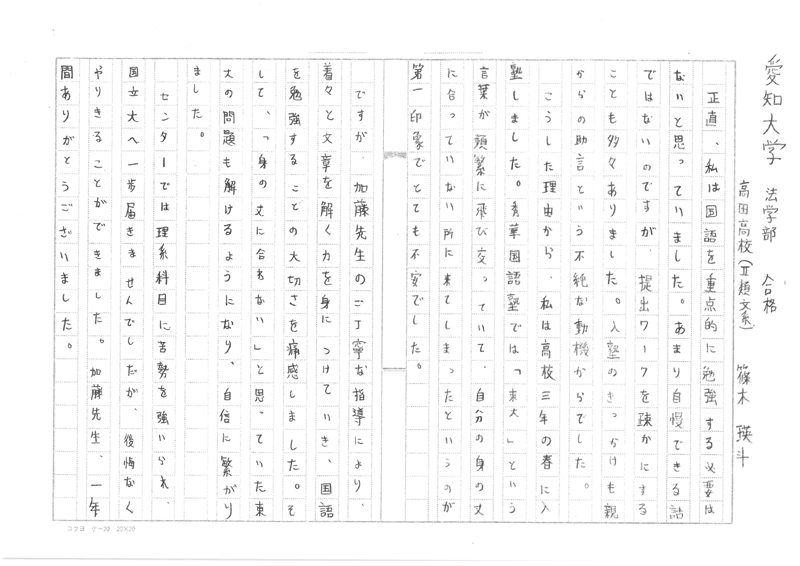 愛知大学 法学部 合格
高田高校(Ⅱ類文系) 篠木 瑛斗
正直、私は国語を重点的に勉強する必要は
ないと思っていました。あまり自慢できる話
ではないのですが、提出ワークを疎かにする
ことも多々ありました。入塾のきっかけも親
からの助言という不純な動機からでした。
こうした理由から、私は高校三年の春に入
塾しました。秀華国語塾では「東大」という
言葉が頻繁に飛び交っていて、自分の身の丈
に合っていない所に来てしまったというのが
第一印象でとても不安でした。
ですが、加藤先生のご丁寧な指導により、
着々と文章を解く力を身につけていき、国語
を勉強することの大切さを痛感しました。そ
して、「身の丈に合わない」と思っていた東
大の問題も解けるようになり、自信に繋がり
ました。
センターでは理系科目に苦労を強いられ、
国立大へ一歩届きませんでしたが、後悔なく
やりきることができました。加藤先生、一年
間ありがとうございました。
コクヨ ケー20 20×20